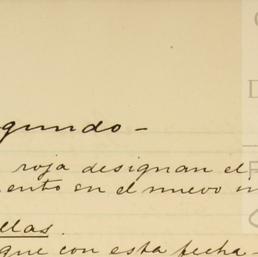 gundo-
roja designan el
ento en el nuevo in
llas.
que con esta fecha-